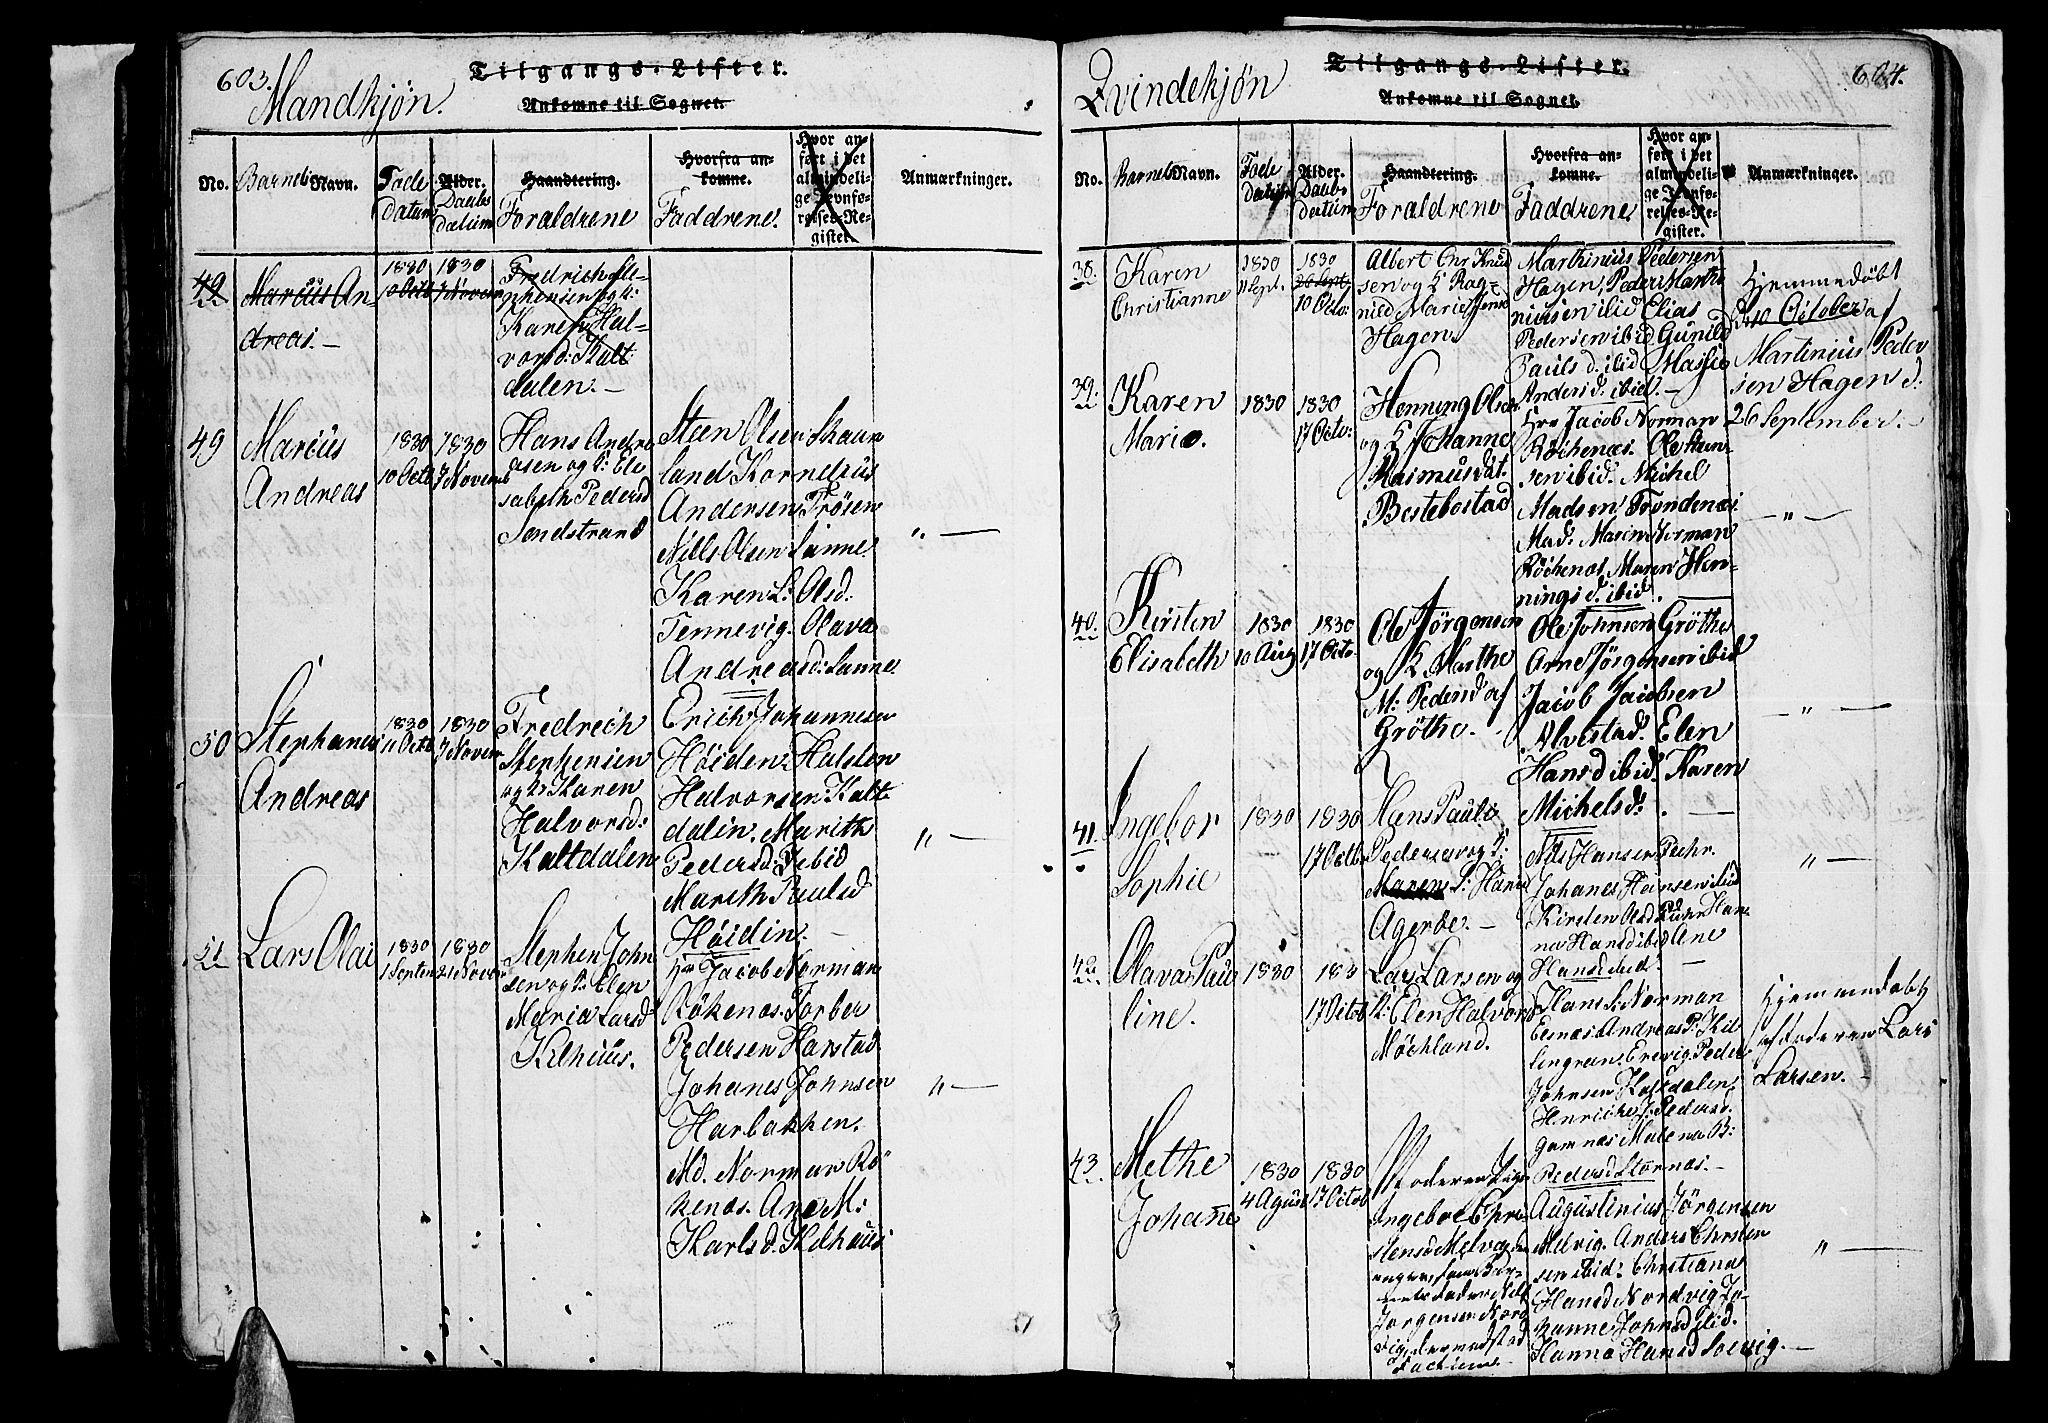 603.
Mandkjøn.
Tilgangs-Lister.
Ankomne til Sognet.
No.
Barnets Navn.
Føde datum
Alder. Daabs datum
Haandtering. Forældrene
Hvorfra ankomne. Faddrene.
Hvor anført i det almindelige Jevnførelses-Register.
Anmærkninger.
49
Marcus An-
dreas.
1830
10 Octb
1830
7 Novem
Fredrich Ste-
phensen og k:
Karen Hal-
vorsd: Kalt
dalen.
49
Marcus
Andreas
1830
10 Octb
1830
7 Novemb
Hans Andre
asen og k: Ele
sabeth Pedersd
Sandstrand
Steen Olsen Skaun
land Kornelius
Andersen Trøsen
Nills Olsen Sanne
Karen L: Olsd:
Tennevig. Olava
Andreasd: Sanne
50
Stephanus
Andreas
1830
11 Octb
1830
7 Novem
Fredrich
Stephensen
og k Karen
Halvorsd:
Kaltdalen
Erich Johannesen
Høiden. Halsten
Halvorsen Kalt
dalin. Marith
Pedersd: Ibid
Marith Paulsd
Høidin.
51
Lars Olai
1830
1 Septem
1830
21 Novem
Stephen John
sen og k: Elen
Maria Larsd
Kilhuus.
Hr Jacob Norman
Rökenæs. Torber
Pedersen Harstad
Johanes Johnsen
Harbakken.
Md. Norman Rö
kenæs. Ane M:
Karlsd. Kilhuus
604.
Qvindekjøn
Tilgangs-Lister.
Ankomne til Sognet.
No.
Barnets Navn.
Føde Datum
Alder. Daabs datum
Haandtering. Forældrene
Hvorfra ankomne. Faddrene
Hvor anført i det almindelige Jevnførelses-Register.
Anmærkninger.
38.
Karen
Christianne
1830
11 Sept.
1830
26 Sept
10 Octo:
Albert Chr Knud
sen og k Rag-
nild Marie Jensd
Hagen.
Marthinius Pedersen
Hagen, Peder Marthi
niusen ibid Elias
Pedersen ibid Gunild
Pauls d. ibid Massie
Anders d. ibid.
Hjemmedøbt
d 10 October af
Martinius Peder
sen Hagen d:
26 September.
39.
Karen
Maria.
1830
1830
17 Octo:
Henning Olsen
og k Johanne
Rasmusdat.
Bestebostad
Hr Jacob Norman
Röckenæs. Ole Hen
sen ibid. Michel
Madsen Trondenæs
Mad: Maren Norman
Röckenæs Maren Hen-
nings d. ibid.
40.
Kirsten
Elisabeth
1830
10 Aug
1830
17 Octo.
Ole Jörgensen
og k Marthe
M: Pedersd af
Gröthe.
Ole Johnsen Gröthe
Arne Jörgensen ibid
Jacob Jacobsen
Alvestad. Elen
Hansd ibid. Karen
Michelsd:
41.
Ingebor
Sophie
1830
1830
17 Octb
Hans Paul
Pedersen og k:
Maren
Agerbe.
Nils Hansen
Johanes Hansen ibid
Kirsten Olsd
na Hansd ibid Ane
Hansd ibid.
42.
Olava Pau
line.
1830
183
17 Octob
Lars Larsen og
k: Elen Halvord
Möchland.
Hans Norman
Andreas
Peder
Johnsen Kaltdalen,
Henriche Pedersd.
Gamnæs Malena B:
Pedersd Stornæs.
Hjemmedøbt
af Faderen Lars
Larsen.
43.
Methe
Johane
1830
4 Agust
1830
17 Octob
Moderen Pige
Ingebor
Melvig
Bar-
nets Fader Nils
Jörgensen Nord
vig
Augustinius Jörgensen
Melvig. Anders Christen
sen ibid: Christiana
Hansd Nordvig Jo-
hanne Johnsd ibid.
Hanna Hansd Solvig.